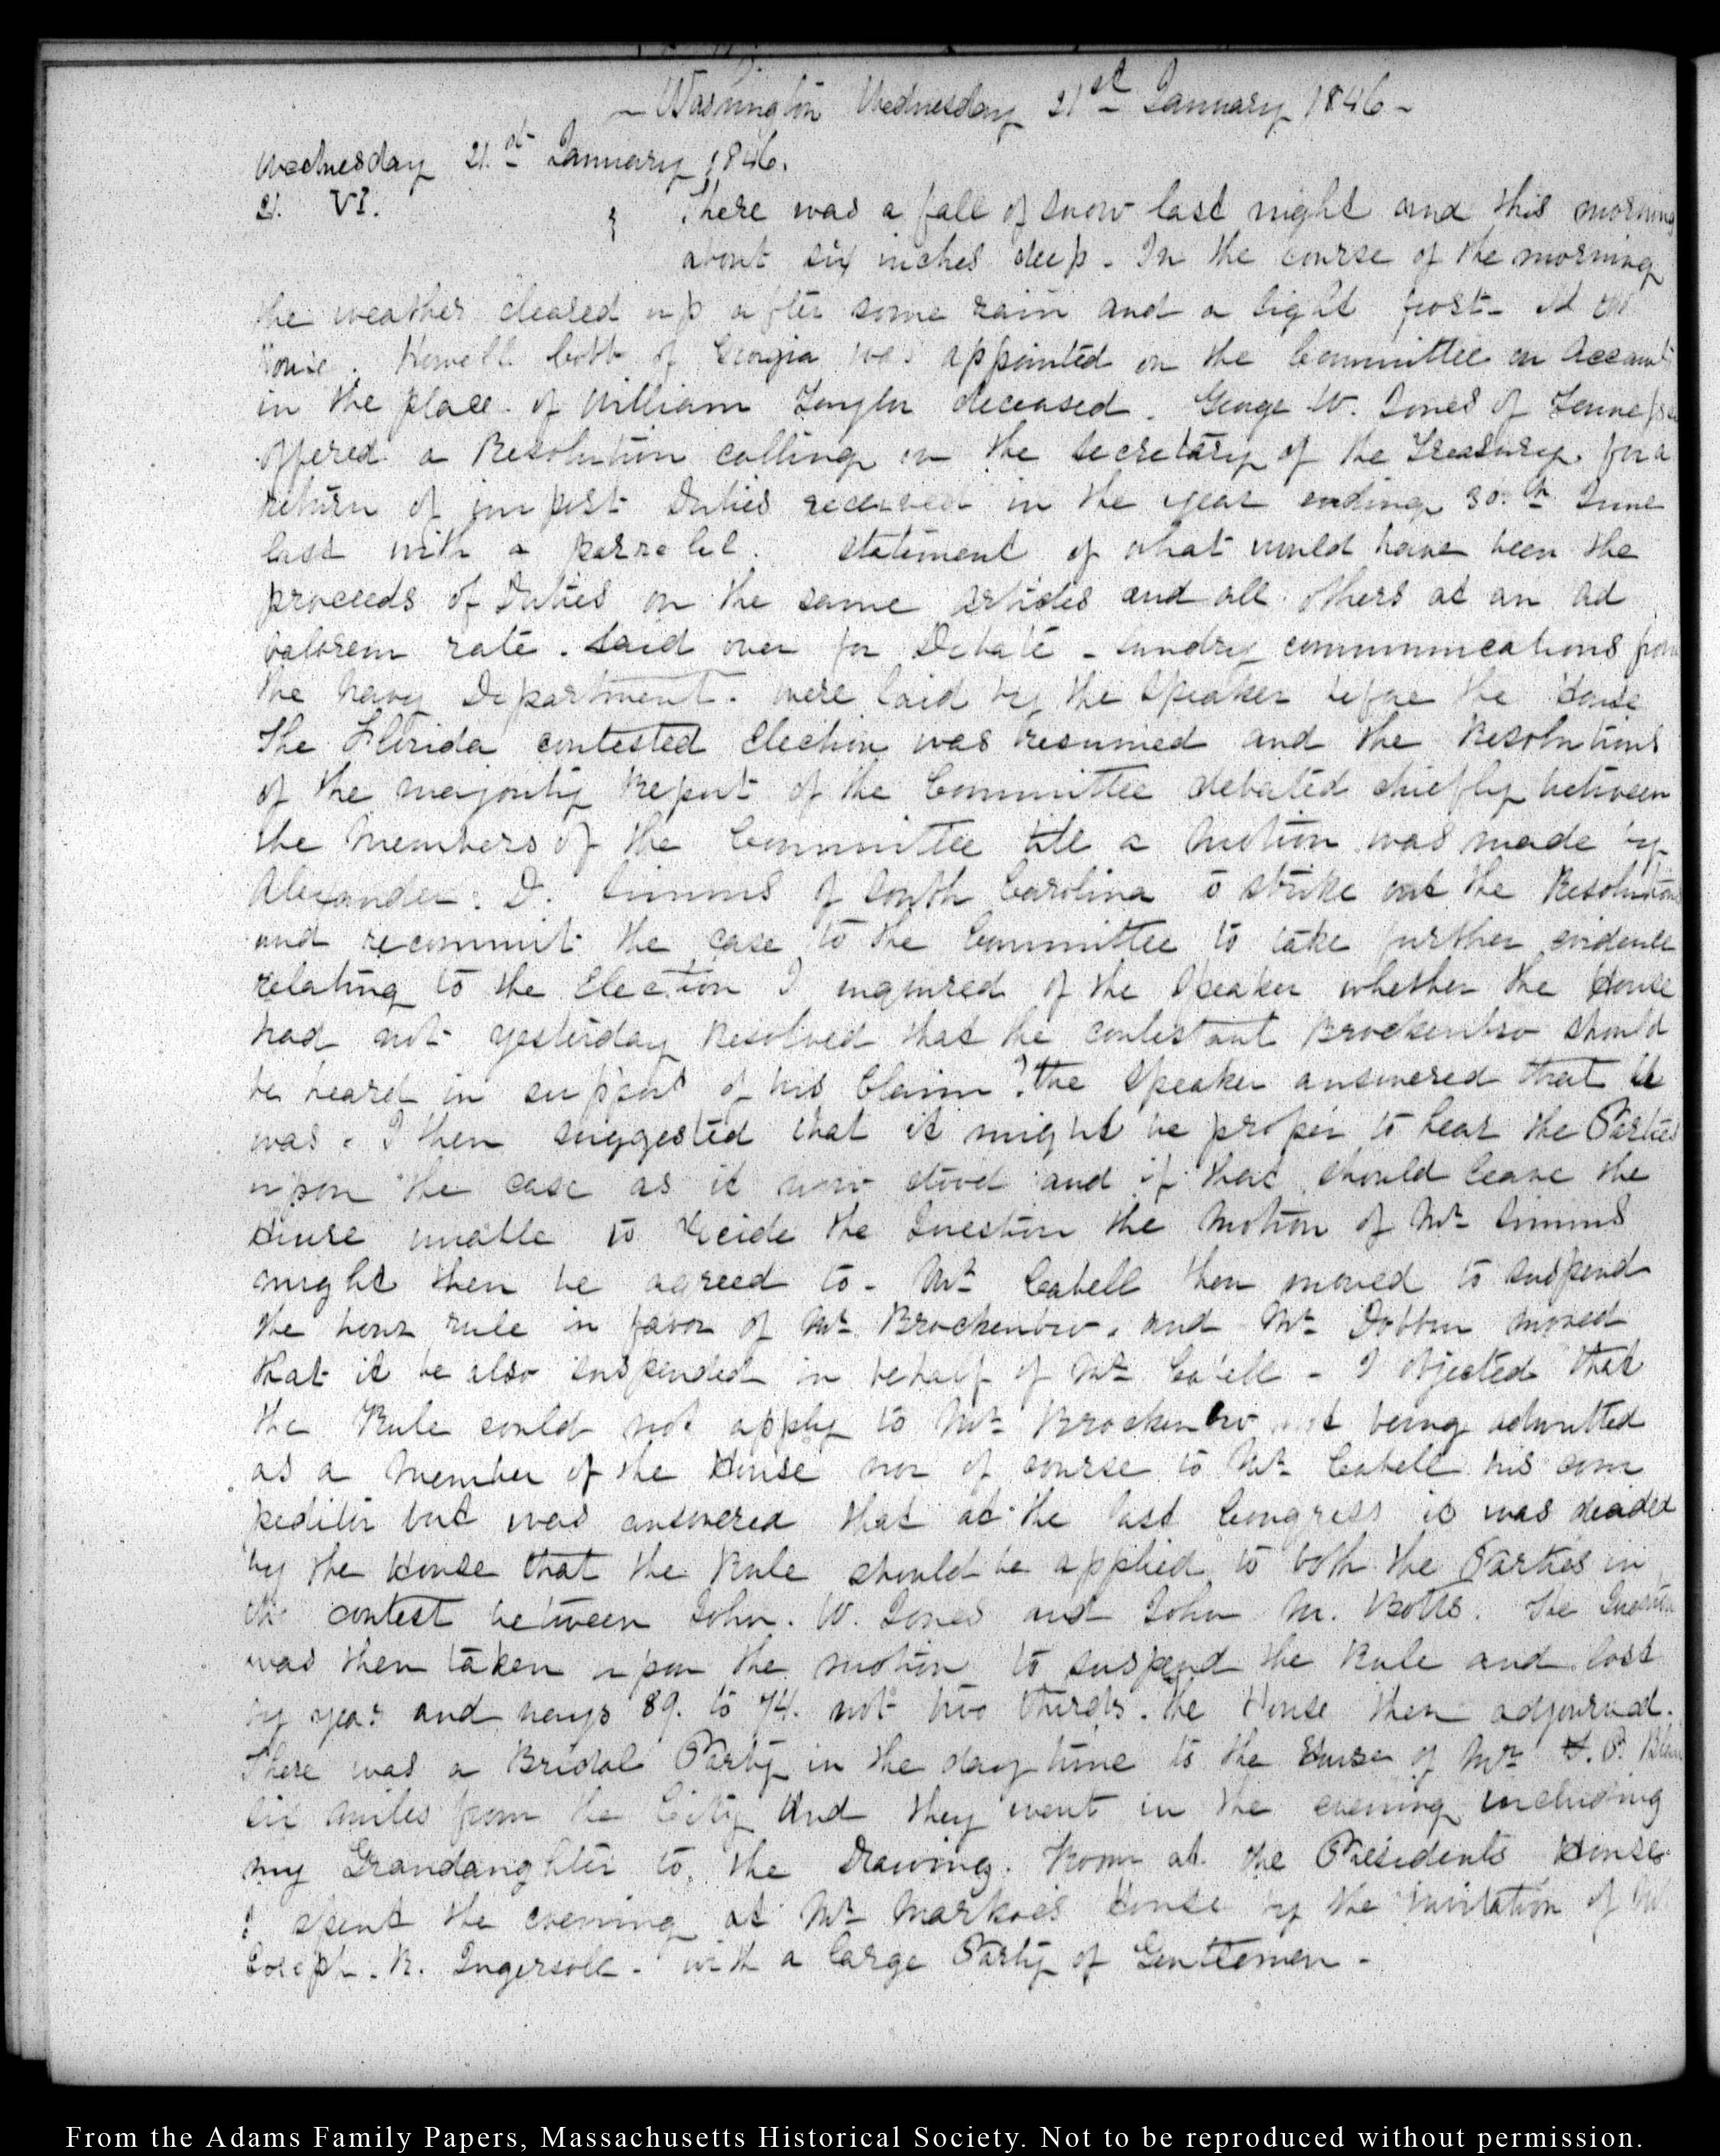 – Washington Wednesday 21st January 1846 –
Wednesday 21.st January 1846.
21. VI. There was a fall of snow last night and this morning
about six inches deep – In the course of the morning
the weather cleared up after some rain and a light frost – At the
House. Howell Cobb of Georgia was appointed on the Committee on Accounts
in the place of William Taylor deceased. George W. Jones of Tennessee
offered a Resolution calling on the Secretary of the Treasury. for a
return of impost Duties received in the year ending 30.th June
last with a parralel. statement of what would have been the
proceeds of Duties on the same articles and all others at an ad
valorem rate. laid over for Debate – Sundry communications from
the Navy Department. were laid by the Speaker before the House
The Florida contested Election was resumed and the Resolutions
of the majority Report of the Committee debated chiefly between
the Members of the Committee till a Motion was made by
Alexander. D. Simms of South Carolina to strike out the Resolutions
and recommit the case to the Committee to take further evidence
relating to the Election I enquired of the Speaker whether the House
had not yesterday Resolved that the contestant Brockenbro should
be heard in support of his Claim? the Speaker answered that it
was. I then suggested that it might be proper to hear the Parties
upon the case as it now stood and if that should leave the
House unable to decide the Question the Motion of Mr Simms
might then be agreed to – Mr Cabell then moved to suspend
the hour rule in favor of Mr Brockenbro. and Mr Dobbin moved
that it be also suspended in behalf of Mr Cabell – I objected that
the Rule could not apply to Mr Brockenbro not being admitted
as a Member of the House nor of course to Mr Cabell his com
peditor but was answered that at the last Congress it was decided
by the House that the Rule should be applied to both the Parties in
the contest between John. W. Jones and John M. Botts. The Question
was then taken upon the motion to suspend the Rule and lost
by yeas and nays 89. to 74. not two thirds. the House then adjourned.
There was a Bridal Party in the day time to the House of Mr F. P. Blair
six miles from the City And they went in the evening including
my Grandaughter to. the Drawing. Room at the Presidents House
I spent the evening at Mr Markoe's House by the invitation of Mr
Joseph. R. Ingersoll – with a large Party of Gentlemen –
From the Adams Family Papers, Massachusetts Historical Society. Not to be reproduced without permission.